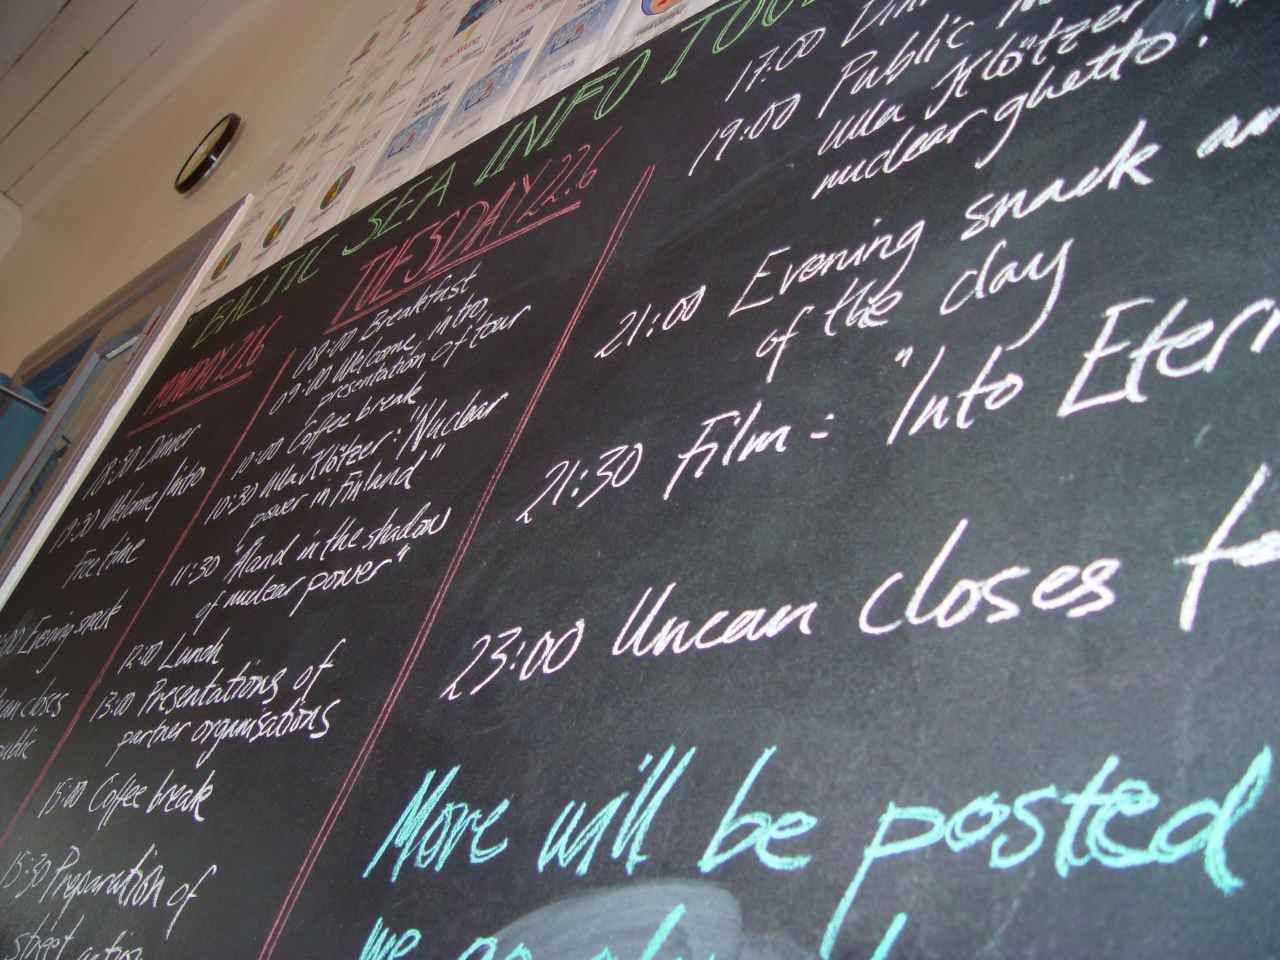 BALTIC SEA INFO TOUR
MONDAY 21.6
18:30 Dinner
19:30 Welcome/intro
Free time
Evening snack
closes
public
TUESDAY 22.6
08:00 Breakfast
09:00 Welcome, intro,
presentation of tour
10:00 Coffee break
10:30 Ulla Klötzer: "Nuclear
power in Finland"
11:30 "Åland in the shadow
of nuclear power"
12:00 Lunch
13:00 Presentations of
partner organisations
15:00 Coffee break
15:30 Preparation of
street action
17:00
19:00 Public
Ulla Klötzer
nuclear ghetto.
21:00 Evening snack
of the day
21:30 Film: "Into
23:00 Uncan closes
More will be posted
we go